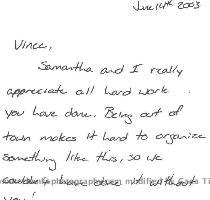 June 14th 2003
Vince,
Samantha and I really
appreciate all hard work
you have done. Being out of
town makes it hard to organize
something like this, so we
couldn't have done it without
you!